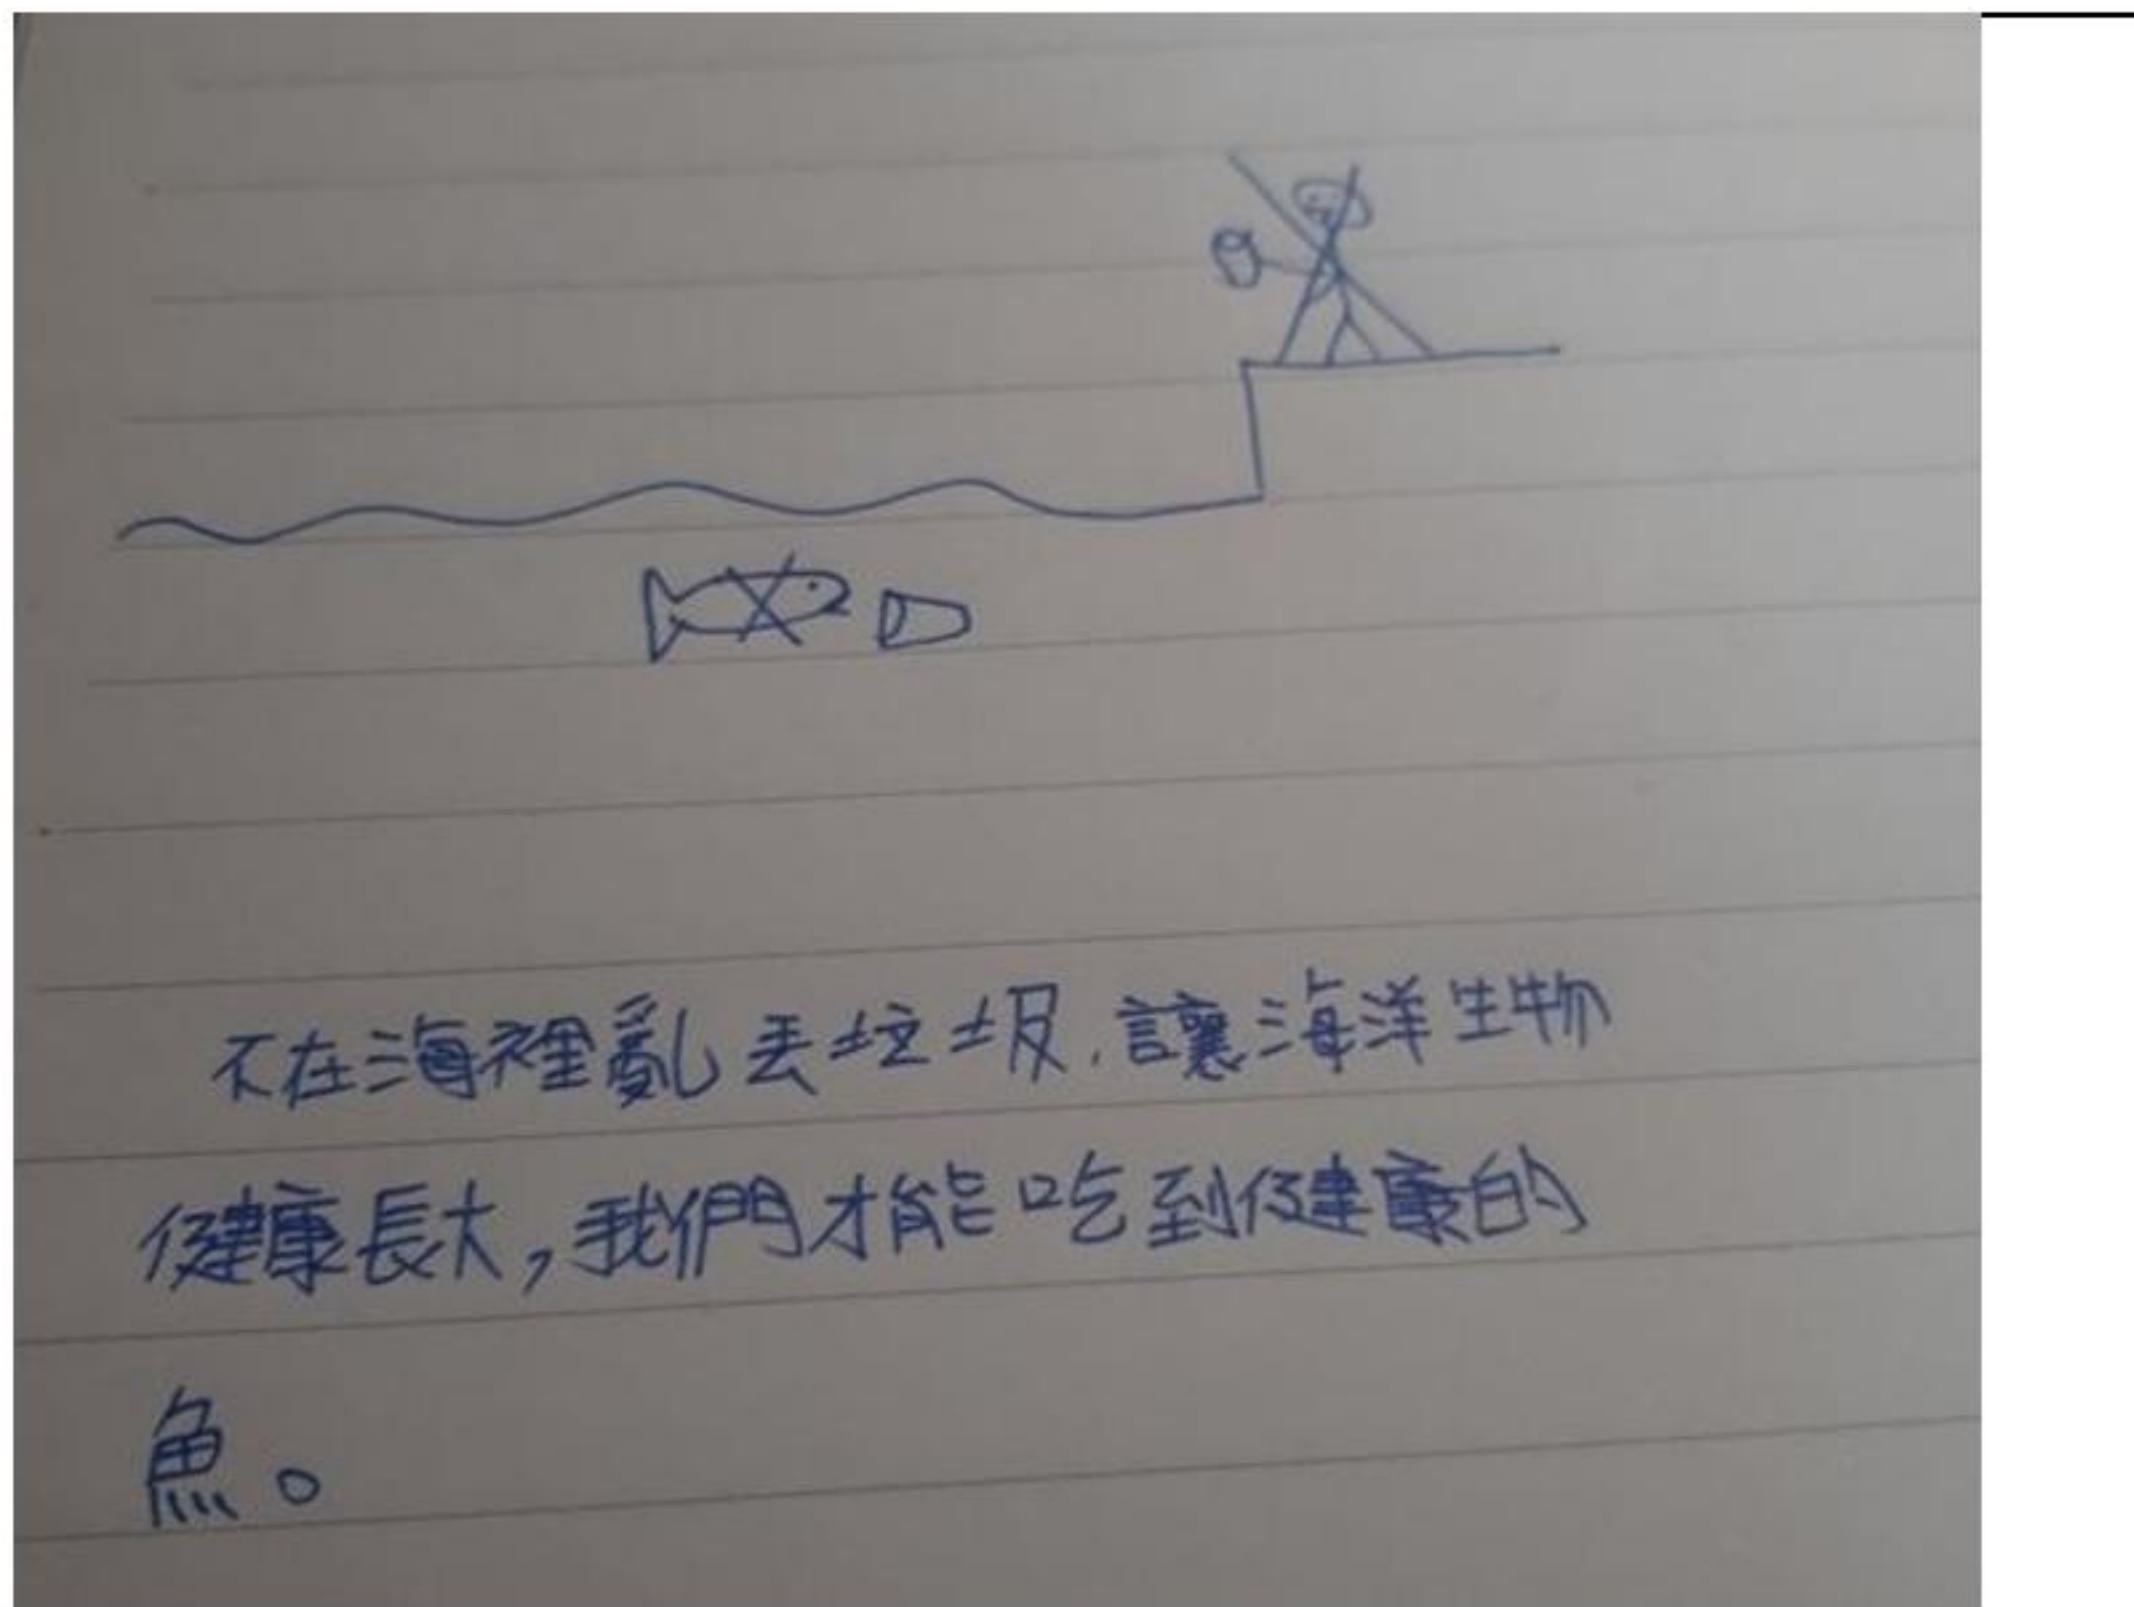 不在海裡亂丟垃圾,讓海洋生物
健康長大,我們才能吃到健康的
魚。